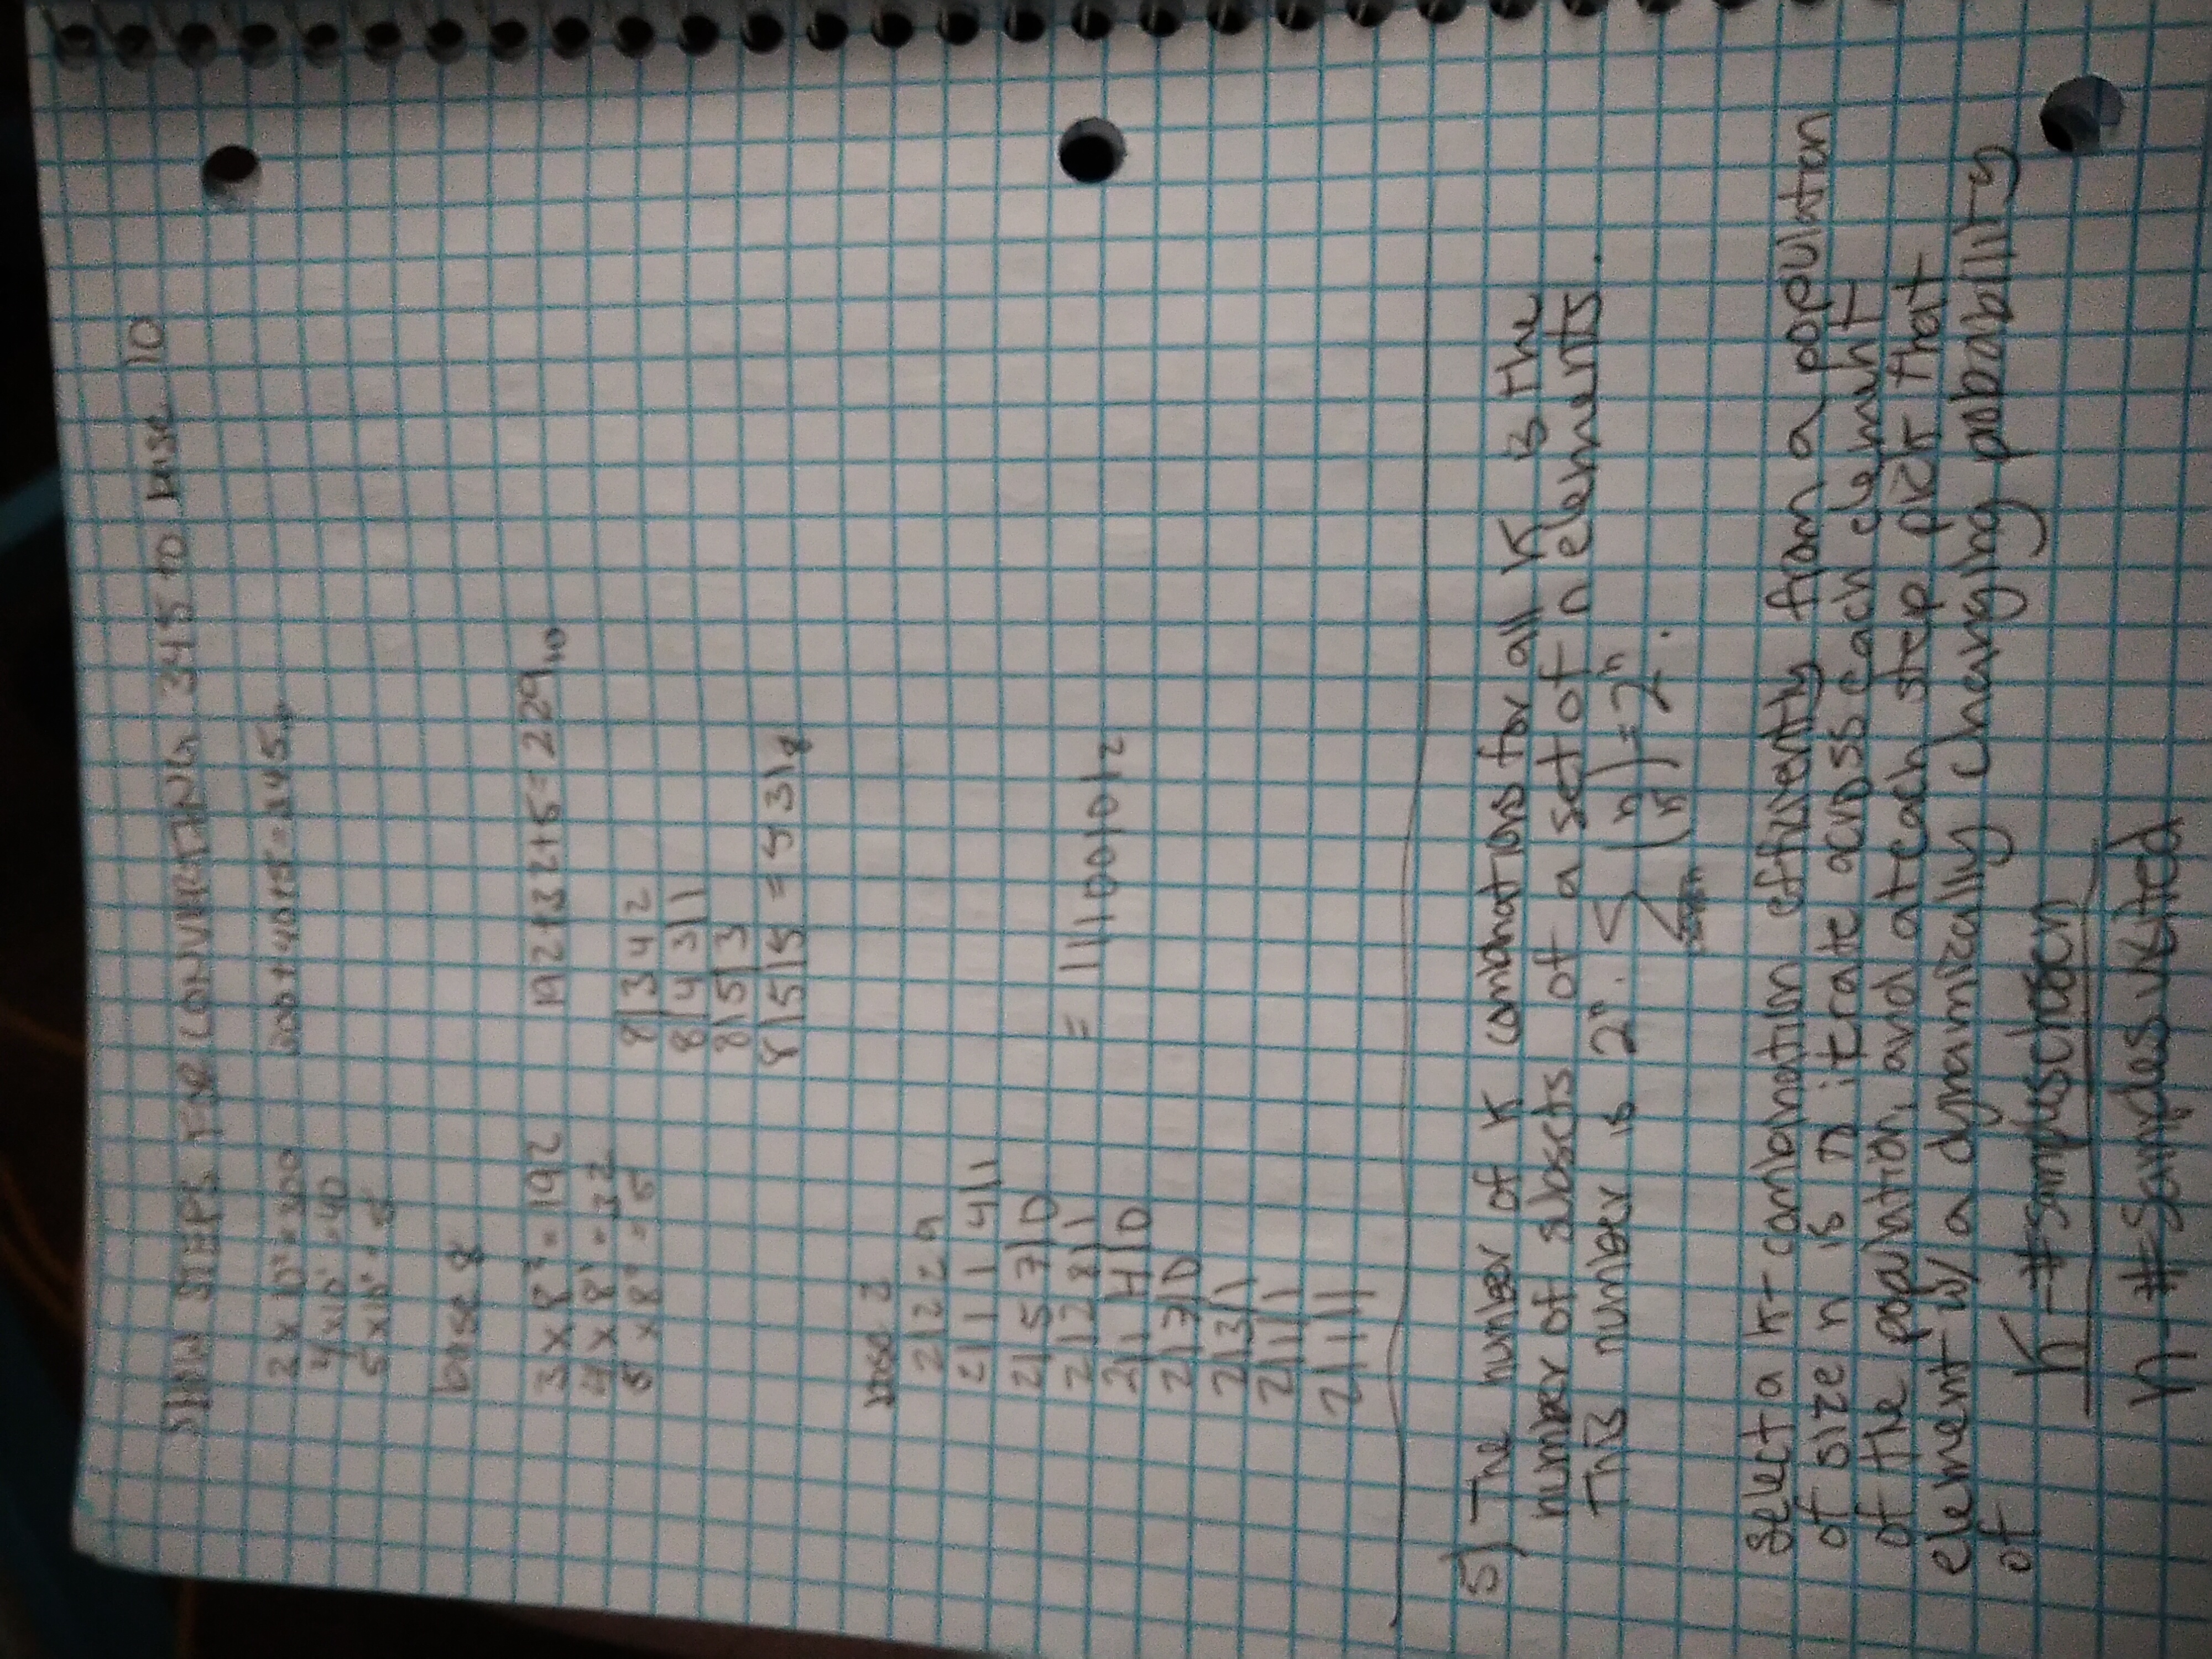 SHOW STEPS FOR CONVERTING 345 to base 10
2 x 10² = 300 300 + 40 + 5 = 345₁₀
4 x 10¹ = 40
5 x 10⁰ = 5
base 8
3 x 8² = 192 192 + 32 + 5 = 229₁₀
4 x 8¹ = 32
5 x 8⁰ = 5 8|3 4 2
8|4 3|1
8|5|3
8|5|5 = 531₈
base 2
2|2 2 9
2|1 1 4|1
2|5 7|0
2|2 8|1 = 11100101₂
2|1 4|0
2|7|0
2|3|1
2|1|1
2|1|1
5) The number of K combinations for all K is the
number of subsets of a set of n elements.
This number is 2ⁿ. Σ (n K) = 2ⁿ.
select a K-combination efficiently from a population
of size n is to itrate across each element
of the population, and at each step pick that
element w/ a dynamically changing probability
of K - # samples chosen
n - # samples visited